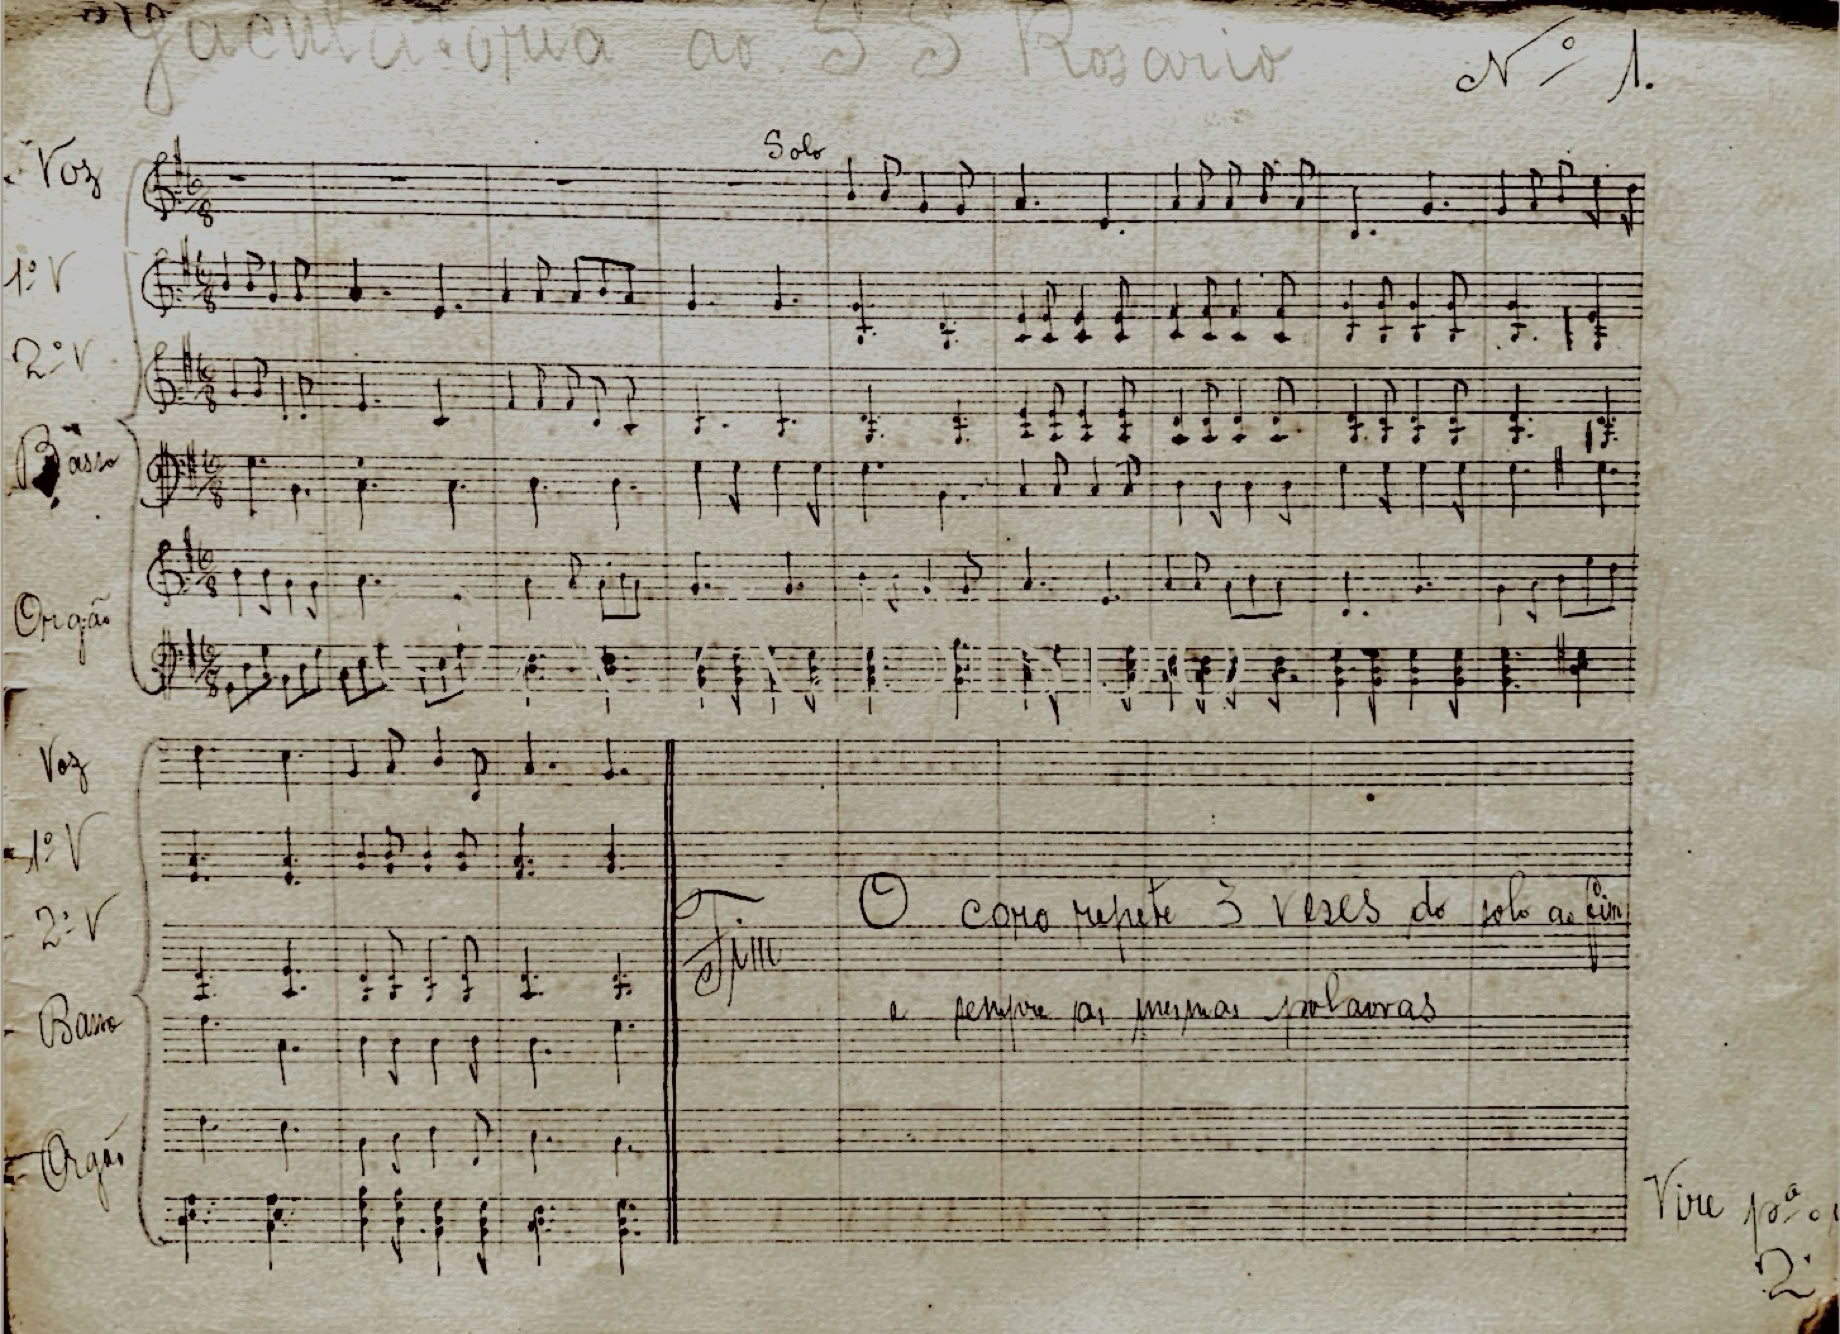 Jaculatoria ao S S Rosario
Nº 1.
Solo
Voz
1º V
2º V
Basso
Orgão
Voz
1º V
2º V
Basso
Orgão
Fim
O coro repete 3 veses do solo ao fim
e sempre as mesmas palavras
Vire pª o
2º